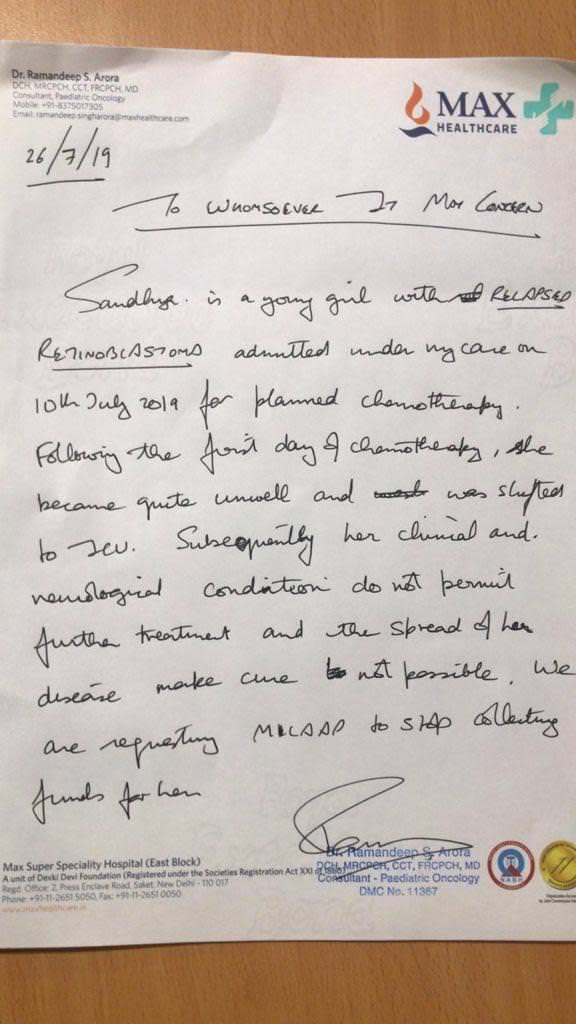 Dr. Ramandeep S. Arora
DCH, MRCPCH, CCT, FRCPCH, MD
Consultant, Paediatric Oncology
Mobile: +91-8375017305
Email: ramandeep.singharora@maxhealthcare.com
MAX
HEALTHCARE
26/7/19
To WHOMSOEVER IT MAY CONCERN
Sandhya is a young girl with RELAPSED
RETINOBLASTOMA admitted under my care on
10th July 2019 for planned chemotherapy.
Following the first day of chemotherapy, she
became quite unwell and was shifted
to ICU. Subsequently her clinical and
neurological condition do not permit
further treatment and the spread of her
disease make cure not possible. We
are requesting MILAAP to stop collecting
funds for her
Dr. Ramandeep S. Arora
DCH, MRCPCH, CCT, FRCPCH, MD
Consultant - Paediatric Oncology
DMC No. 11367
Max Super Speciality Hospital (East Block)
A unit of Devki Devi Foundation (Registered under the Societies Registration Act XXI of
Regd. Office: 2, Press Enclave Road, Saket, New Delhi - 110 017
Phone: +91-11-2651 5050, Fax: +91-11-2651 0050
www.maxhealthcare.in
NABH